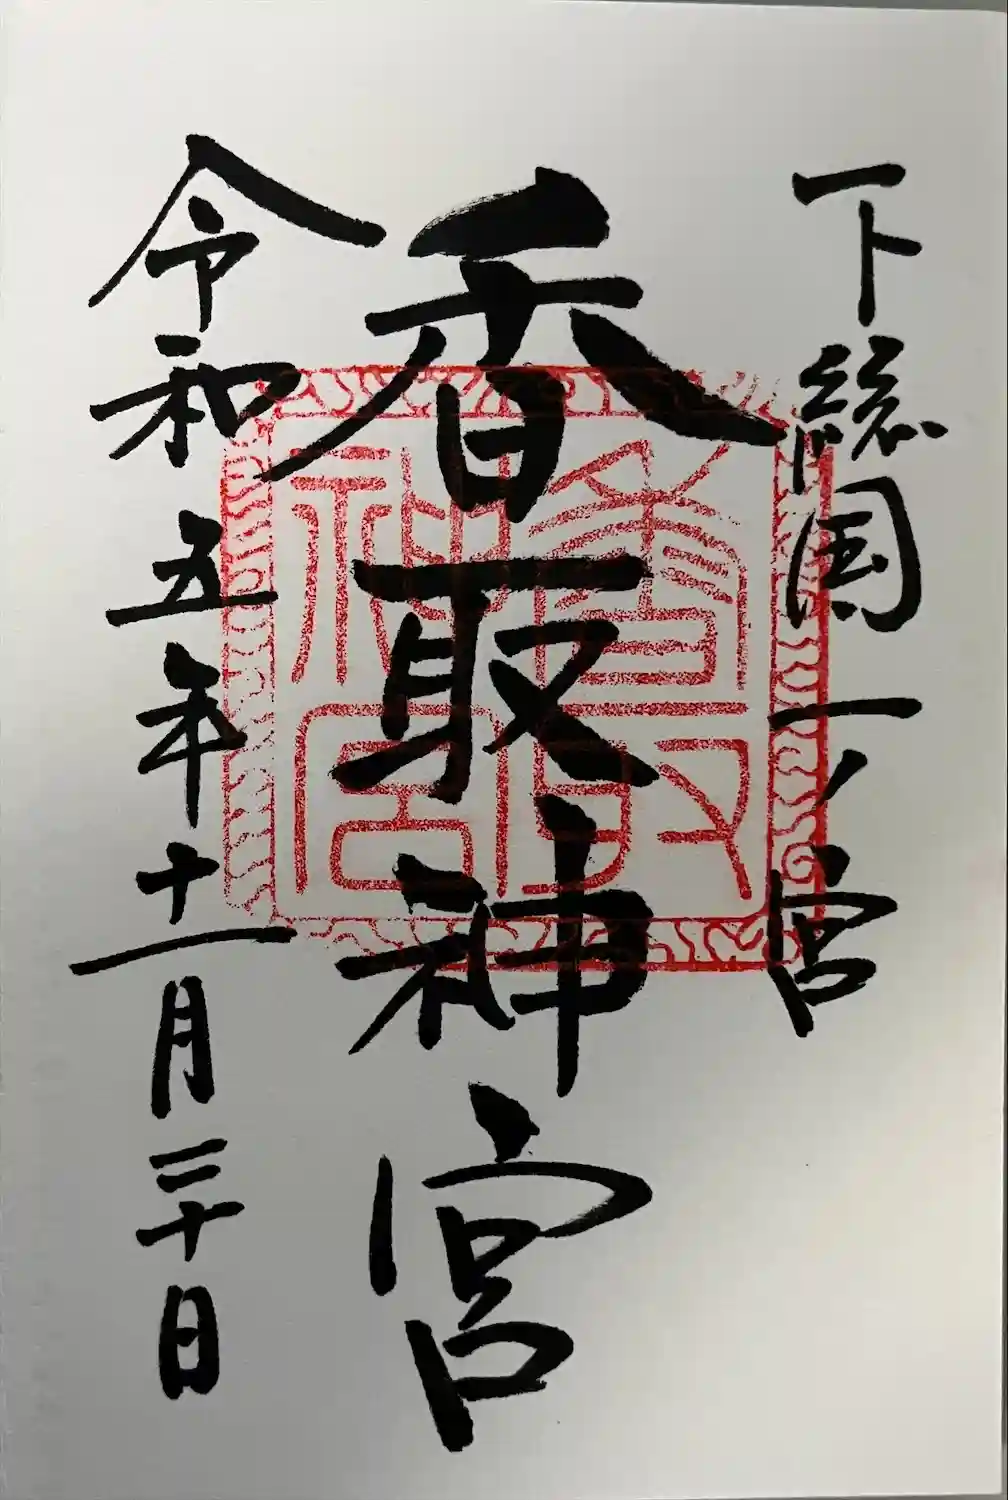 下総国一ノ宮
香取神宮
令和五年十一月三十日
香取神宮